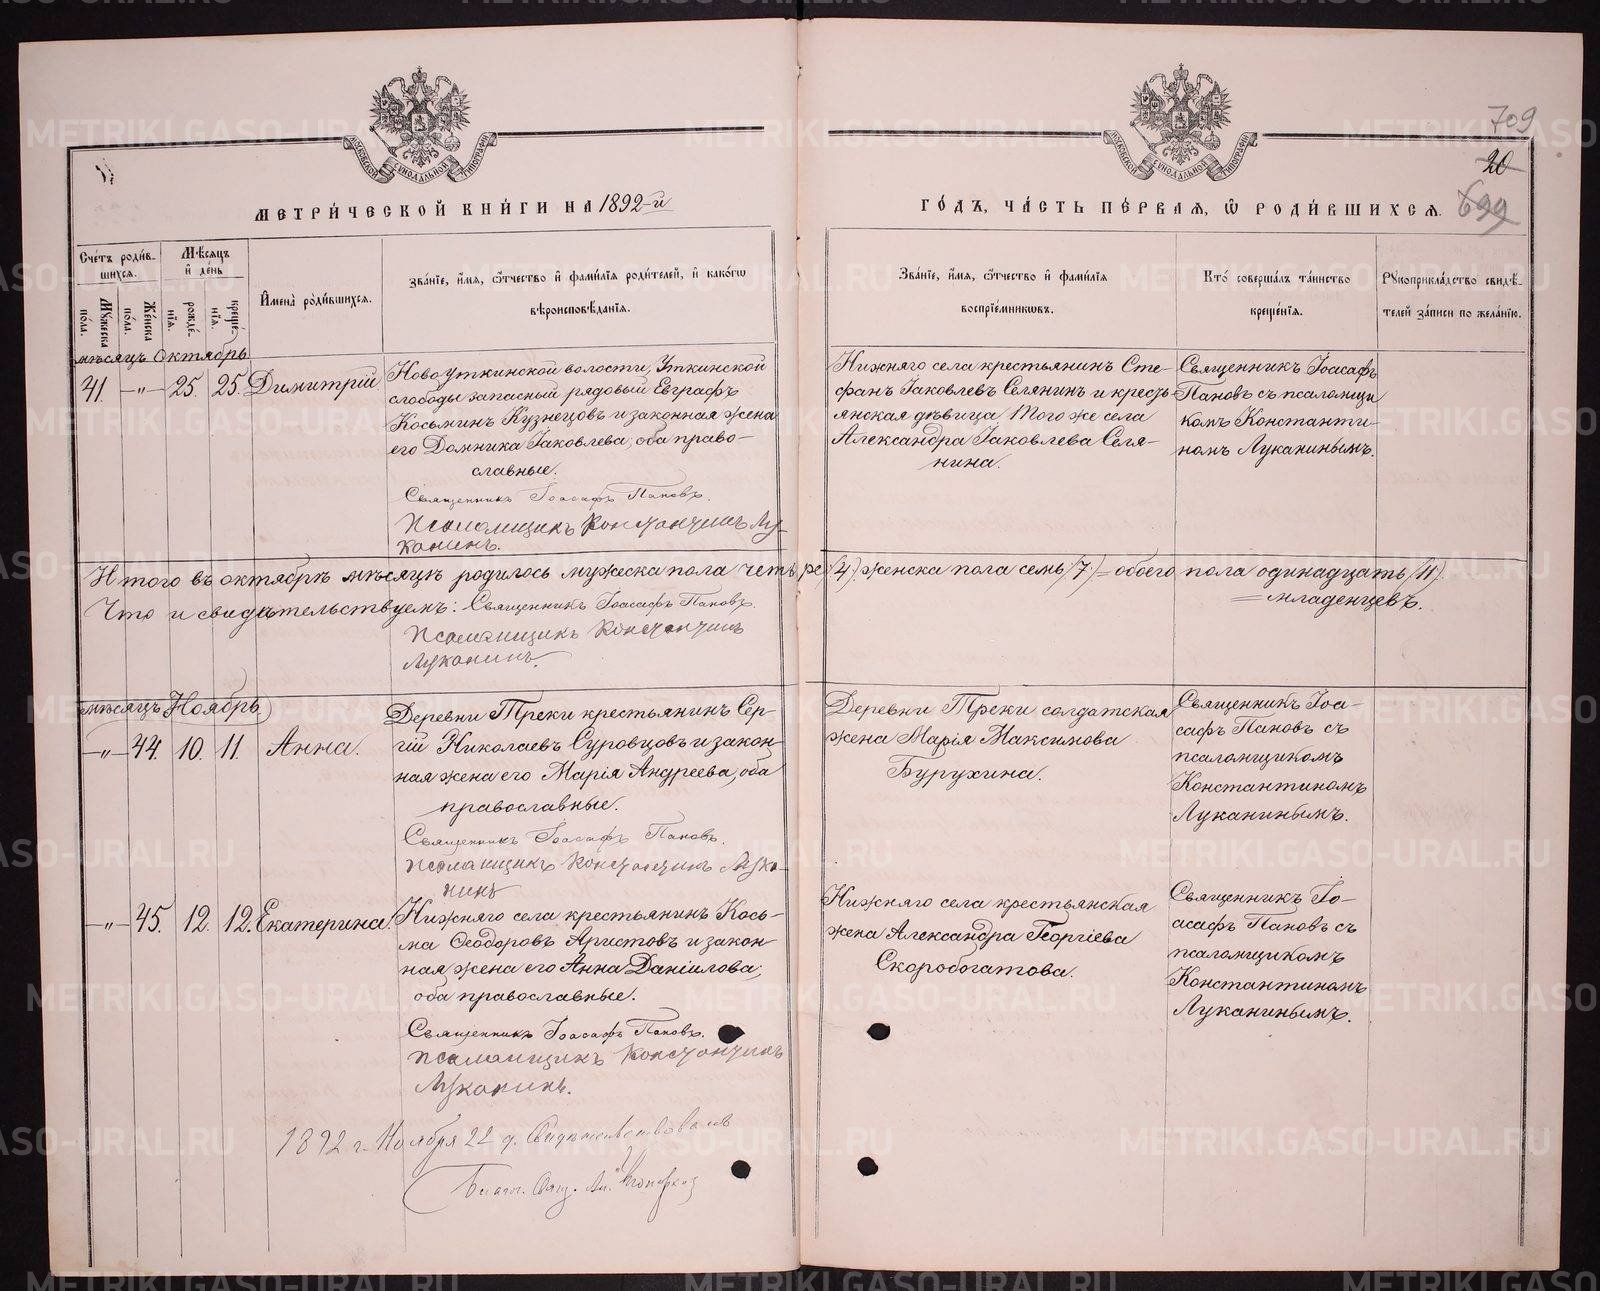 709
20
699
МОСКОВСКОЙ СѴНОДАЛЬНОЙ ТИПОГРАФІИ
МОСКОВСКОЙ СѴНОДАЛЬНОЙ ТИПОГРАФІИ
МЕТРИ́ЧЕСКОЙ КНИ́ГИ НА 1892-й
ГО́ДЪ, ЧА́СТЬ ПЕ́РВАЯ, Ѡ РОДИ́ВШИХСЯ.
Сче́тъ роди́в-
шихся.
Мꙋжеска по́ла.
Же́нска по́ла.
Мѣ́сяцъ
и҆ де́нь
рожде́-
нїя.
креще́-
нїя.
И҆мена̀ роди́вшихся.
Зва́нїе, и҆́мя, ѻ҆́тчество и҆ фами́лїя роди́телей, и҆ како́гѡ
вѣроисповѣ́данїя.
Зва́нїе, и҆́мя, ѻ҆́тчество и҆ фами́лїя
воспрїе́мникѡвъ.
Кто̀ соверша́лъ та́инство
креще́нїя.
Рꙋкоприкла́дство свидѣ́-
телей за́писи по жела́нїю.
мѣсяцъ Октябрь
41. —„— 25. 25. Димитрій
Новоуткинской волости, Уткинской
слободы запасный рядовый Евграфъ
Косьминъ Кузнецовъ и законная жена
его Домника Іаковлева, оба право-
славные.
Священникъ Іоасафъ Поповъ.
Псаломщикъ Константинъ Лу-
канинъ.
Нижняго села крестьянинъ Сте-
фанъ Іаковлевъ Селянинъ и кресть-
янская дѣвица того же села
Александра Іаковлева Селя-
нина.
Священникъ Іоасафъ
Поповъ съ псаломщи
комъ Константи-
номъ Луканинымъ.
Итого въ октябрѣ мѣсяцѣ родилось мужеска пола четыре (4) женска пола семь (7) = обоего пола одинадцать (11)
= младенцевъ.
Что и свидѣтельствуемъ: Священникъ Іоасафъ Поповъ.
Псаломщикъ Константинъ
Луканинъ.
мѣсяцъ Ноябрь
—„— 44. 10. 11. Анна.
Деревни Треки крестьянинъ Сер-
гій Николаевъ Суровцовъ и закон-
ная жена его Марія Андреева, оба
православные.
Священникъ Іоасафъ Поповъ.
Псаломщикъ Константинъ Лука-
нинъ
Деревни Треки солдатская
жена Марія Максимова
Бурухина.
Священникъ Іоа-
сафъ Поповъ съ
псаломщикомъ
Константиномъ
Луканинымъ.
—„— 45. 12. 12. Екатерина.
Нижняго села крестьянинъ Кось-
ма Ѳеодоровъ Аристовъ и закон-
ная жена его Анна Даніилова,
оба православные.
Священникъ Іоасафъ Поповъ.
Псаломщикъ Константинъ
Луканинъ.
Нижняго села крестьянская
жена Александра Георгіева
Скоробогатова.
Священникъ Іо-
асафъ Поповъ съ
псаломщикомъ
Константиномъ
Луканинымъ.
1892 г. Ноября 22 д. Свидѣтельствовалъ
Благоч. Свящ.
METRIKI.GASO-URAL.RU